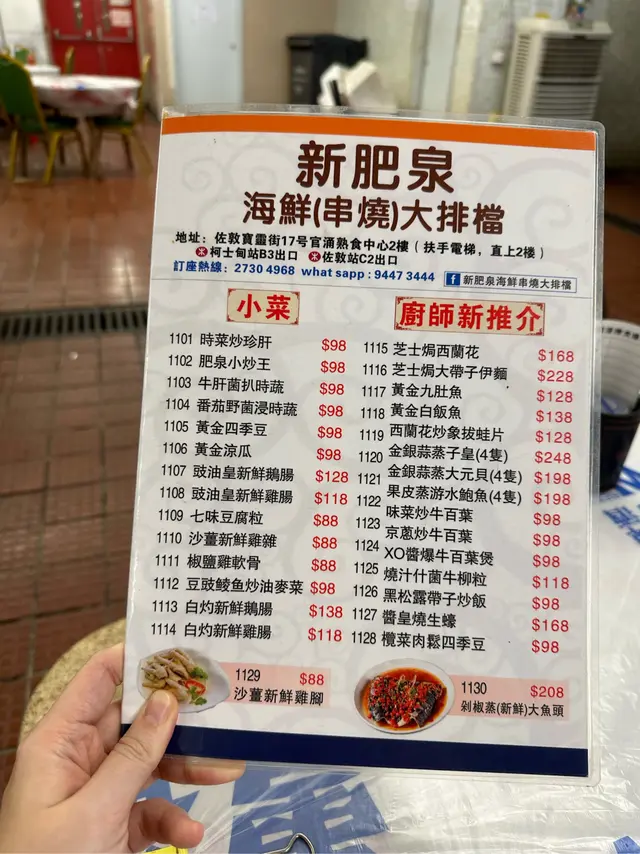 新肥泉
海鮮(串燒)大排檔
地址：佐敦寶靈街17号官涌熟食中心2樓（扶手電梯，直上2樓）
柯士甸站B3出口 佐敦站C2出口
訂座熱線：2730 4968 whatsapp : 9447 3444 f 新肥泉海鮮串燒大排檔
小菜
1101 時菜炒珍肝 $98
1102 肥泉小炒王 $98
1103 牛肝菌扒時蔬 $98
1104 番茄野菌浸時蔬 $98
1105 黃金四季豆 $98
1106 黃金涼瓜 $98
1107 豉油皇新鮮鵝腸 $128
1108 豉油皇新鮮雞腸 $118
1109 七味豆腐粒 $88
1110 沙薑新鮮雞雜 $88
1111 椒鹽雞軟骨 $88
1112 豆豉鲮鱼炒油麥菜 $98
1113 白灼新鮮鵝腸 $138
1114 白灼新鮮雞腸 $118
廚師新推介
1115 芝士焗西蘭花 $168
1116 芝士焗大帶子伊麵 $228
1117 黃金九肚魚 $128
1118 黃金白飯魚 $138
1119 西蘭花炒象拔蚌片 $128
1120 金銀蒜蒸子皇(4隻) $248
1121 金銀蒜蒸大元貝(4隻) $198
1122 果皮蒸游水鮑魚(4隻) $198
1123 味菜炒牛百葉 $98
1124 京蔥炒牛百葉 $98
1125 XO醬爆牛百葉煲 $98
1126 燒汁什菌牛柳粒 $118
1127 黑松露帶子炒飯 $98
1127 醬皇燒生蠔 $168
1128 欖菜肉鬆四季豆 $98
1129 $88
沙薑新鮮雞腳
1130 $208
剁椒蒸(新鮮)大魚頭